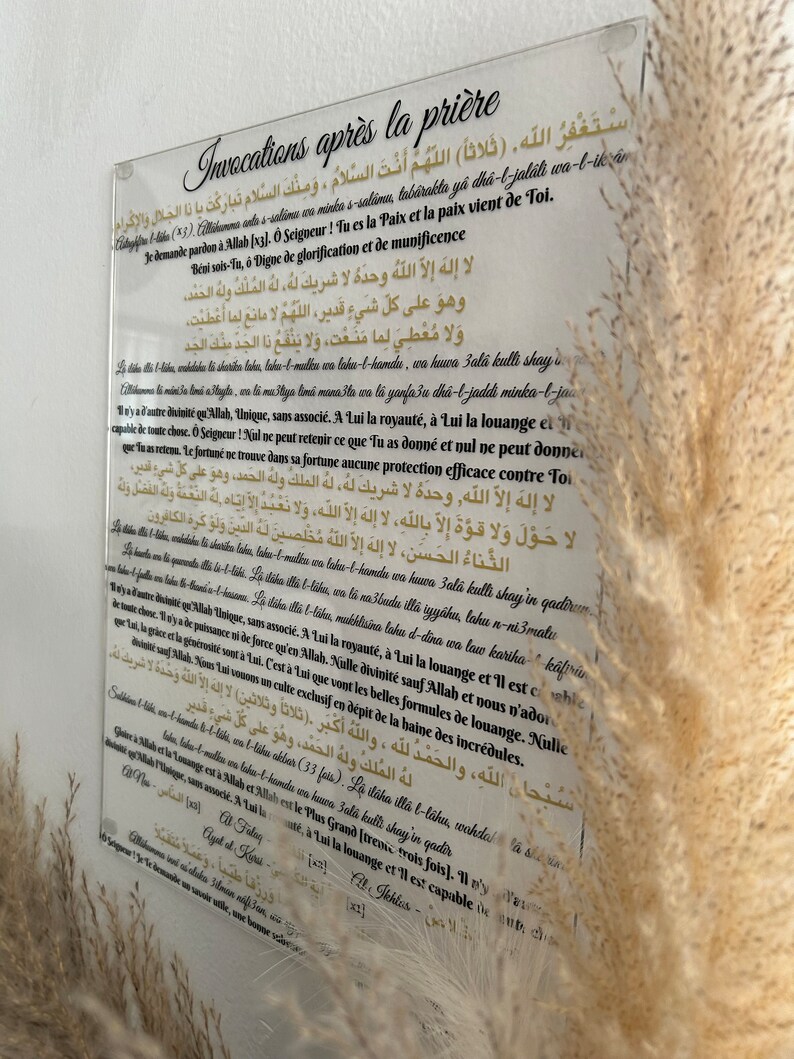 Invocations après la prière
سْتَغْفِرُ اللّه. (ثَلاثاً) اللّهُمَّ أَنْتَ السَّلامُ ، وَمِنْكَ السَّلام تَبارَكْتَ يا ذا الجَلالِ وَالإِكْرام
Astaghfiru l-lâha (x3). Allâhumma anta s-salâmu wa minka s-salâmu, tabârakta yâ dhâ-l-jalâli wa-l-ikrâm
Je demande pardon à Allah [x3]. Ô Seigneur ! Tu es la Paix et la paix vient de Toi.
Béni sois-Tu, ô Digne de glorification et de munificence
لا إلهَ إلاّ اللّهُ وحدَهُ لا شريكَ لهُ، لهُ المُلْكُ ولهُ الحَمْد،
وهوَ على كلّ شَيءٍ قَدير، اللّهُمَّ لا مانِعَ لِما أَعْطَيْت،
وَلا مُعْطِيَ لِما مَنَعْت، وَلا يَنْفَعُ ذا الجَدِّ مِنْكَ الجَد
Lâ ilâha illâ l-lâhu, wahdahu lâ sharika lahu, lahu-l-mulku wa lahu-l-hamdu , wa huwa 3alâ kulli shay
Allâhumma lâ mâni3a limâ a3tayta , wa lâ mu3tiya limâ mana3ta wa lâ yanfa3u dhâ-l-jaddi minka-l-
Il n'y a d'autre divinité qu'Allah, Unique, sans associé. A Lui la royauté, à Lui la louange et Il
capable de toute chose. Ô Seigneur ! Nul ne peut retenir ce que Tu as donné et nul ne peut donner
que Tu as retenu. Le fortuné ne trouve dans sa fortune aucune protection efficace contre Toi
لا إلهَ إلاّ اللّه, وحدَهُ لا شريكَ لهُ، لهُ الملكُ ولهُ الحَمد، وهوَ على كلّ شيءٍ قدير،
لا حَوْلَ وَلا قوَّةَ إِلاّ بِاللهِ، لا إلهَ إلاّ اللّه، وَلا نَعْبُدُ إِلاّ إيّاه, لَهُ النِّعْمَةُ وَلَهُ الفَضْل وَلَهُ
الثَّناءُ الحَسَن، لا إلهَ إلاّ اللّهُ مُخْلِصينَ لَهُ الدِّينَ وَلَوْ كَرِهَ الكافِرون
Lâ ilâha illâ l-lâhu, wahdahu lâ sharika lahu, lahu-l-mulku wa lahu-l-hamdu wa huwa 3alâ kulli shay'in qadirun.
Lâ hawla wa lâ quwwata illâ bi-l-lâhi. Lâ ilâha illâ l-lâhu, wa lâ na3budu illâ iyyâhu, lahu n-ni3matu
wa lahu-l-fadlu wa lahu th-thanâ'u-l-hasanu. Lâ ilâha illâ l-lâhu, mukhlisîna lahu d-dîna wa law kariha-l-kâfirûn
Il n'y a d'autre divinité qu'Allah Unique, sans associé. A Lui la royauté, à Lui la louange et Il est capable
de toute chose. Il n'y a de puissance ni de force qu'en Allah. Nulle divinité sauf Allah et nous n'adorons
que Lui, la grâce et la générosité sont à Lui. C'est à Lui que vont les belles formules de louange. Nulle
divinité sauf Allah. Nous Lui vouons un culte exclusif en dépit de la haine des incrédules.
سُبْحانَ اللهِ، والحَمْدُ لله ، واللهُ أكْبَر .(ثلاثاً وثلاثين) لا إلهَ إلاّ اللّهُ وَحْدَهُ لا شريكَ لهُ،
لهُ المُلكُ ولهُ الحَمْد، وهُوَ على كُلّ شَيءٍ قَدير
Subhâna l-lâhi, wa-l-hamdu li-l-lâhi, wa l-lâhu akbar (33 fois). Lâ ilâha illâ l-lâhu, wahdahu lâ
lahu, lahu-l-mulku wa lahu-l-hamdu wa huwa 3alâ kulli shay'in qadîr
Gloire à Allah et la Louange est à Allah et Allah est le Plus Grand [trente-trois fois]. Il n'y
divinité qu'Allah l'Unique, sans associé. A Lui la royauté, à Lui la louange et Il est capable de
Al Nas - النَّاس [x3] Al Falaq - [x3] Al Ikhlas -
Ayat al-Kursi - [x1]
Allâhumma innî as'aluka 3ilman nâfi3an, wa
Ô Seigneur ! Je Te demande un savoir utile, une bonne